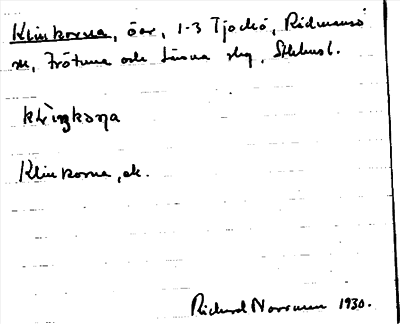 Klinkorna, öar, 1-3 Tjockö, Rådmansö
sn, Frötuna och Länna skg, Sthlmsl.
Klinkorna, ek.
Rickard Norrman 1930.